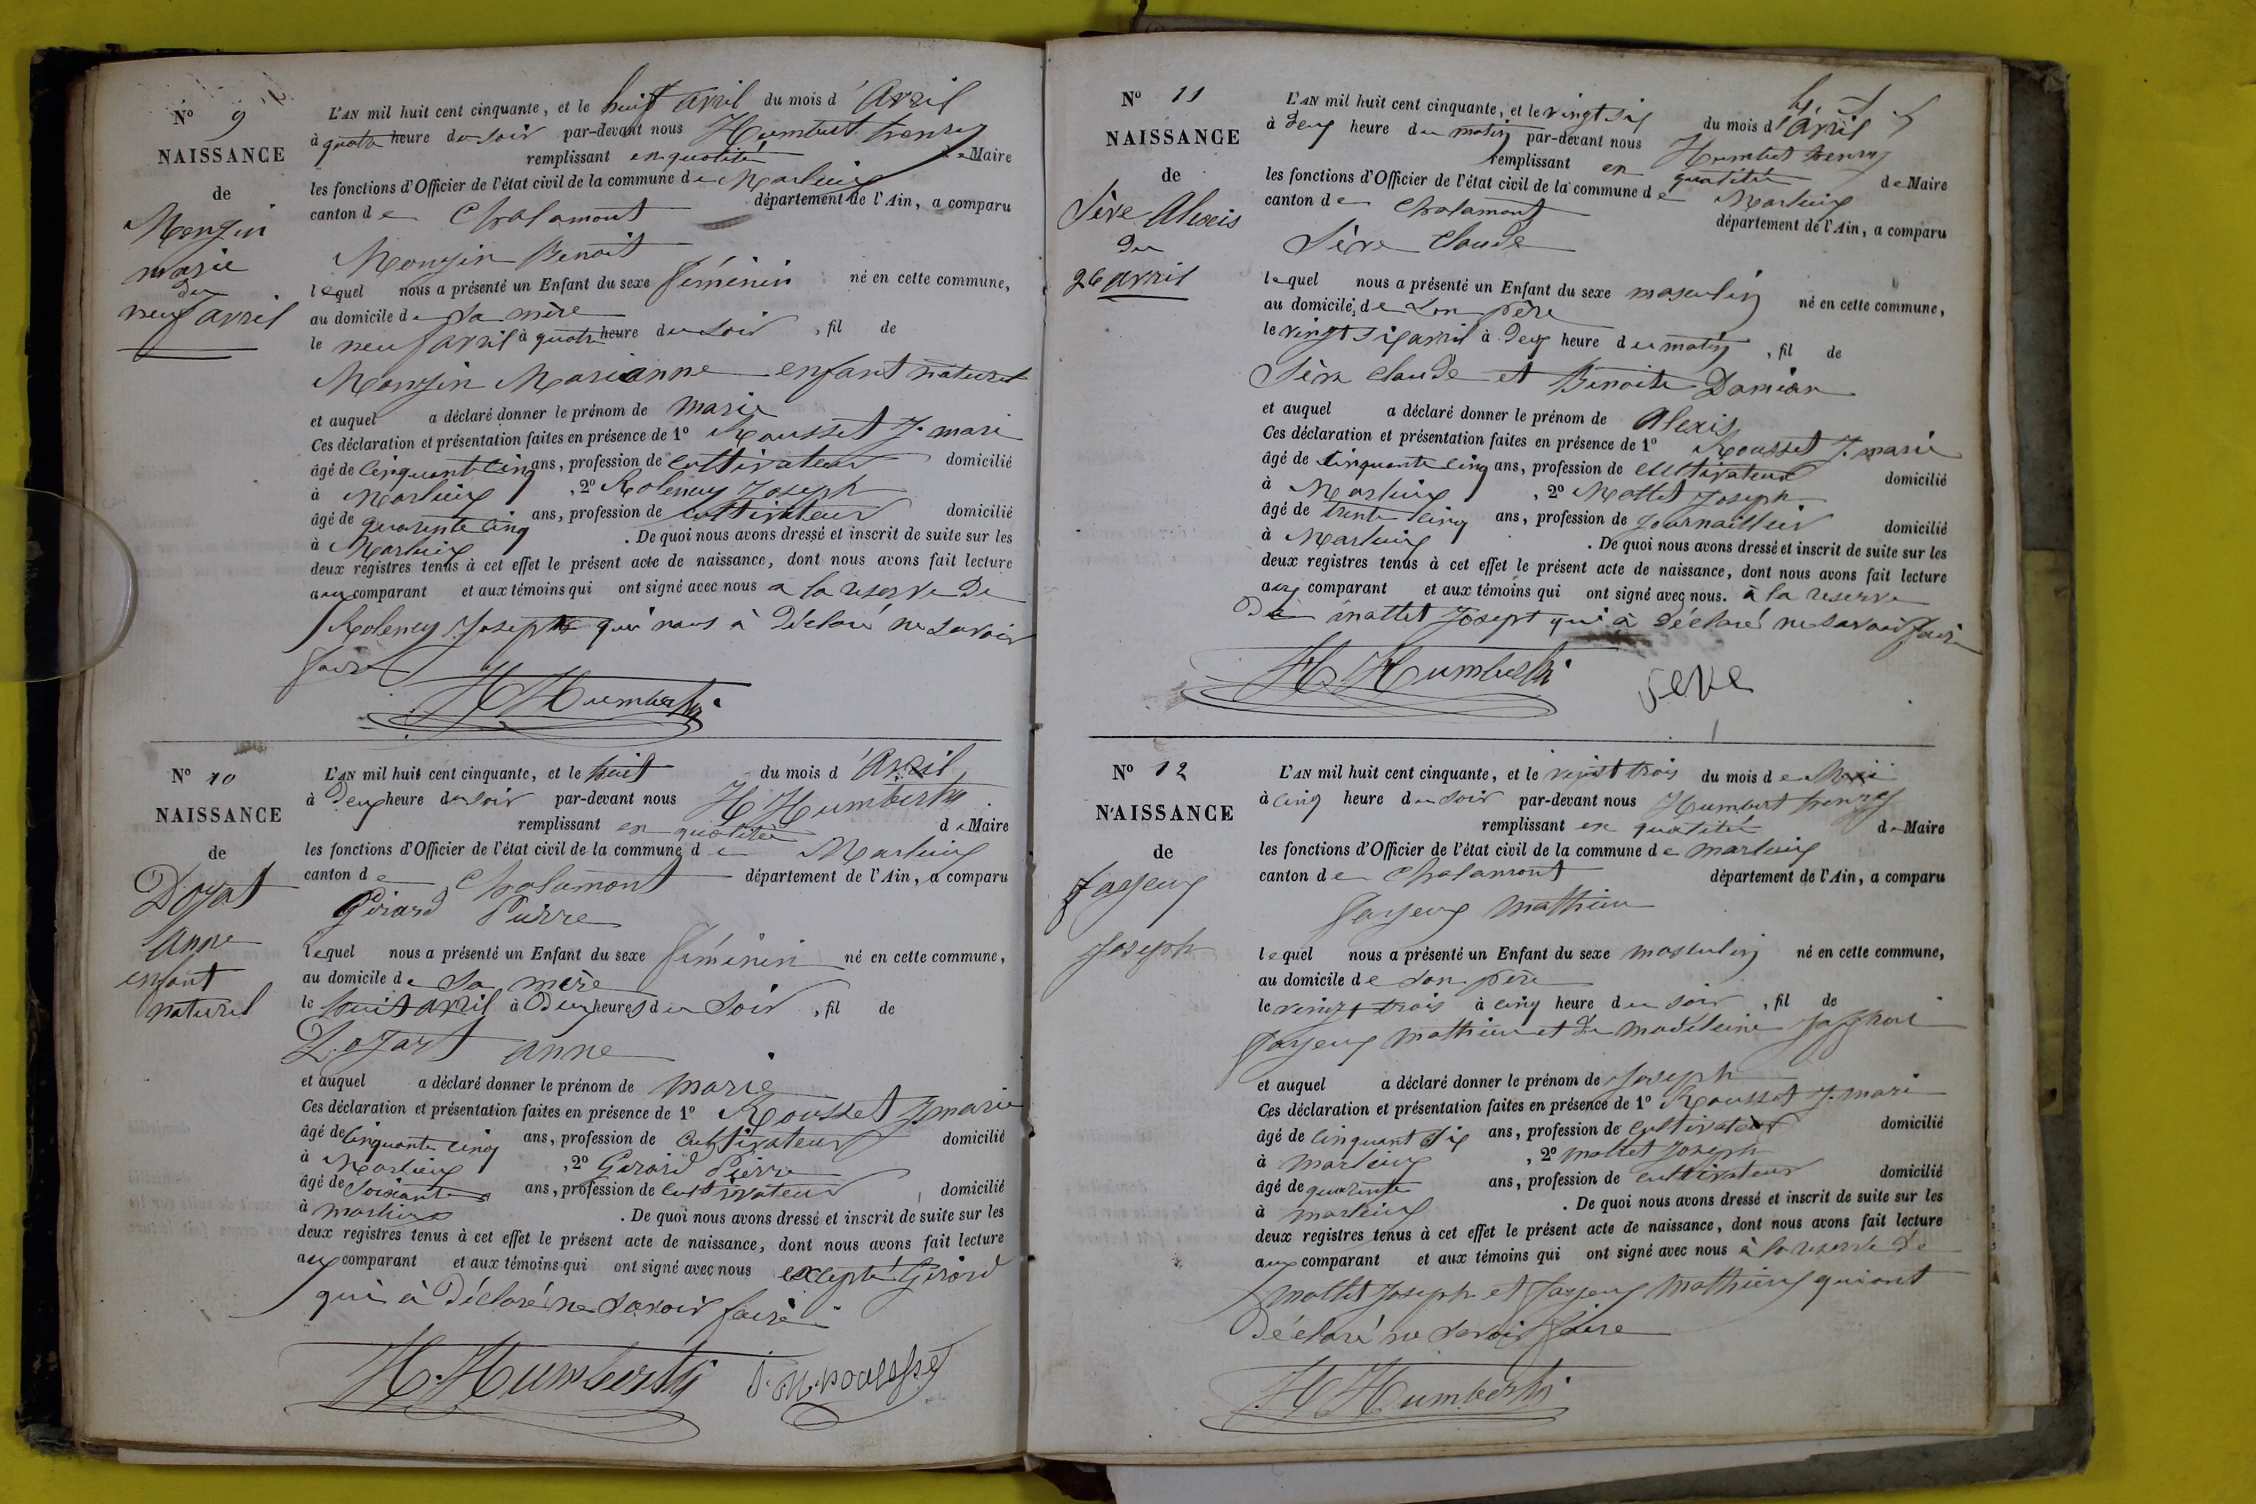 N° 9
NAISSANCE
de
Monzin
marie
du
neuf avril
L'AN mil huit cent cinquante, et le huit avril du mois d'Avril
à quatre heure du soir par-devant nous Humbert henry
remplissant en qualité de Maire
les fonctions d'Officier de l'état civil de la commune de Marlieux
canton de Chalamont département de l'Ain, a comparu
Monzin Benoit
lequel nous a présenté un Enfant du sexe féminin né en cette commune,
au domicile de sa mère
le neuf avril à quatre heure du soir, fil de
Monzin Marianne enfant naturel
et auquel a déclaré donner le prénom de marie
Ces déclaration et présentation faites en présence de 1° Rousset J. marie
âgé de cinquante cinq ans, profession de cultivateur domicilié
à Marlieux, 2° Joseph
âgé de quarente cinq ans, profession de cultivateur domicilié
à Marlieux. De quoi nous avons dressé et inscrit de suite sur les
deux registres tenus à cet effet le présent acte de naissance, dont nous avons fait lecture
aux comparant et aux témoins qui ont signé avec nous a la reserve de
Joseph qui nous à déclaré ne savoir
faire
H Humbert
N° 10
NAISSANCE
de
Dozat
Anne
enfant
naturel
L'AN mil huit cent cinquante, et le huit du mois d'Avril
à deux heure du soir par-devant nous H. Humbert
remplissant en qualité de Maire
les fonctions d'Officier de l'état civil de la commune de Marlieux
canton de Chalamont département de l'Ain, a comparu
Girard Pierre
lequel nous a présenté un Enfant du sexe féminin né en cette commune,
au domicile de sa mère
le huit avril à deux heures du soir, fil de
Dozart anne
et auquel a déclaré donner le prénom de marie
Ces déclaration et présentation faites en présence de 1° Rousset J marie
âgé de cinquante cinq ans, profession de cultivateur domicilié
à Marlieux, 2° Girard Pierre
âgé de soixante ans, profession de cultivateur domicilié
à marlieux. De quoi nous avons dressé et inscrit de suite sur les
deux registres tenus à cet effet le présent acte de naissance, dont nous avons fait lecture
aux comparant et aux témoins qui ont signé avec nous excepté Girard
qui à déclaré ne savoir faire
H. Humbert
N° 11
NAISSANCE
de
Sève Alexis
du
26 avril
L'AN mil huit cent cinquante, et le vingt six du mois d'Avril
à deux heure du matin par-devant nous Humbert henry
remplissant en qualité de Maire
les fonctions d'Officier de l'état civil de la commune de Marlieux
canton de Chalamont département de l'Ain, a comparu
Sève Claude
lequel nous a présenté un Enfant du sexe masculin né en cette commune,
au domicile de son père
le vingt six avril à deux heure du matin, fil de
Sève Claude et Benoite Damian
et auquel a déclaré donner le prénom de Alexis
Ces déclaration et présentation faites en présence de 1° Rousset J. marie
âgé de cinquante cinq ans, profession de cultivateur domicilié
à Marlieux, 2° Mottet Joseph
âgé de trente cinq ans, profession de journaillier domicilié
à Marlieux. De quoi nous avons dressé et inscrit de suite sur les
deux registres tenus à cet effet le présent acte de naissance, dont nous avons fait lecture
aux comparant et aux témoins qui ont signé avec nous. à la reserve
De mattet Josept qui à déclaré ne savoir faire
H Humbert seve
N° 12
NAISSANCE
de
Joseph
L'AN mil huit cent cinquante, et le vingt trois du mois de Mai
à cinq heure du soir par-devant nous Humbert henry
remplissant en qualité de Maire
les fonctions d'Officier de l'état civil de la commune de marlieux
canton de Chalamont département de l'Ain, a comparu
mathieu
lequel nous a présenté un Enfant du sexe masculin né en cette commune,
au domicile de son père
le vingt trois à cinq heure du soir, fil de
mathieu et de madeleine
et auquel a déclaré donner le prénom de Joseph
Ces déclaration et présentation faites en présence de 1° Rousset J. marie
âgé de cinquant six ans, profession de cultivateur domicilié
à marlieux, 2° mattet Joseph
âgé de quarente ans, profession de cultivateur domicilié
à marlieux. De quoi nous avons dressé et inscrit de suite sur les
deux registres tenus à cet effet le présent acte de naissance, dont nous avons fait lecture
aux comparant et aux témoins qui ont signé avec nous à la reserve de
mottet Joseph et mathieu qui ont
déclaré ne savoir faire
H Humbert